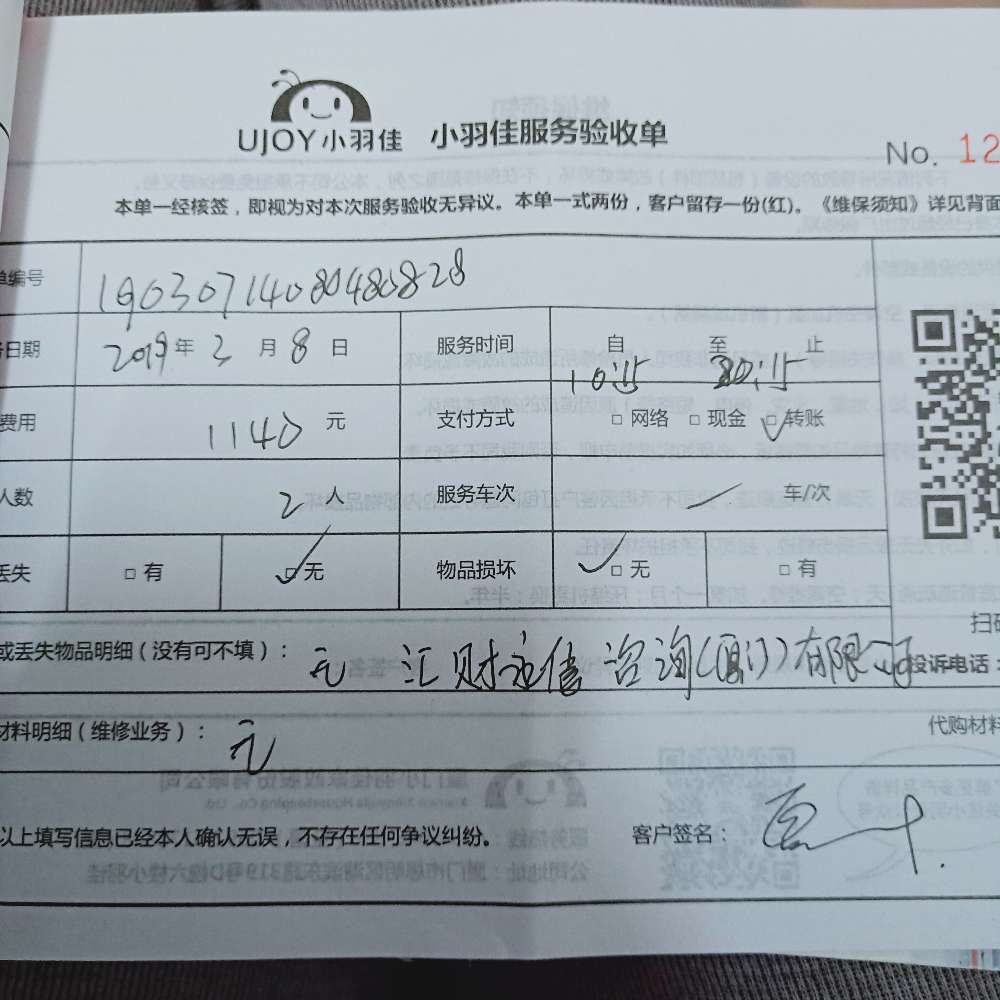 UJOY小羽佳 小羽佳服务验收单
No. 12
本单一经核签，即视为对本次服务验收无异议。本单一式两份，客户留存一份(红)。《维保须知》详见背面
单编号 19030714080480828
日期 2019年3月8日 服务时间 自 10:15 至 20:15 止
费用 1140 元 支付方式 □ 网络 □ 现金 ☑ 转账
人数 2 人 服务车次 车/次
丢失 □ 有 ☑ 无 物品损坏 ☑ 无 □ 有
扫码
或丢失物品明细（没有可不填）： 无 汇财永信咨询(厦门)有限公司 投诉电话：
材料明细（维修业务）： 无 代购材料
以上填写信息已经本人确认无误，不存在任何争议纠纷。 客户签名：